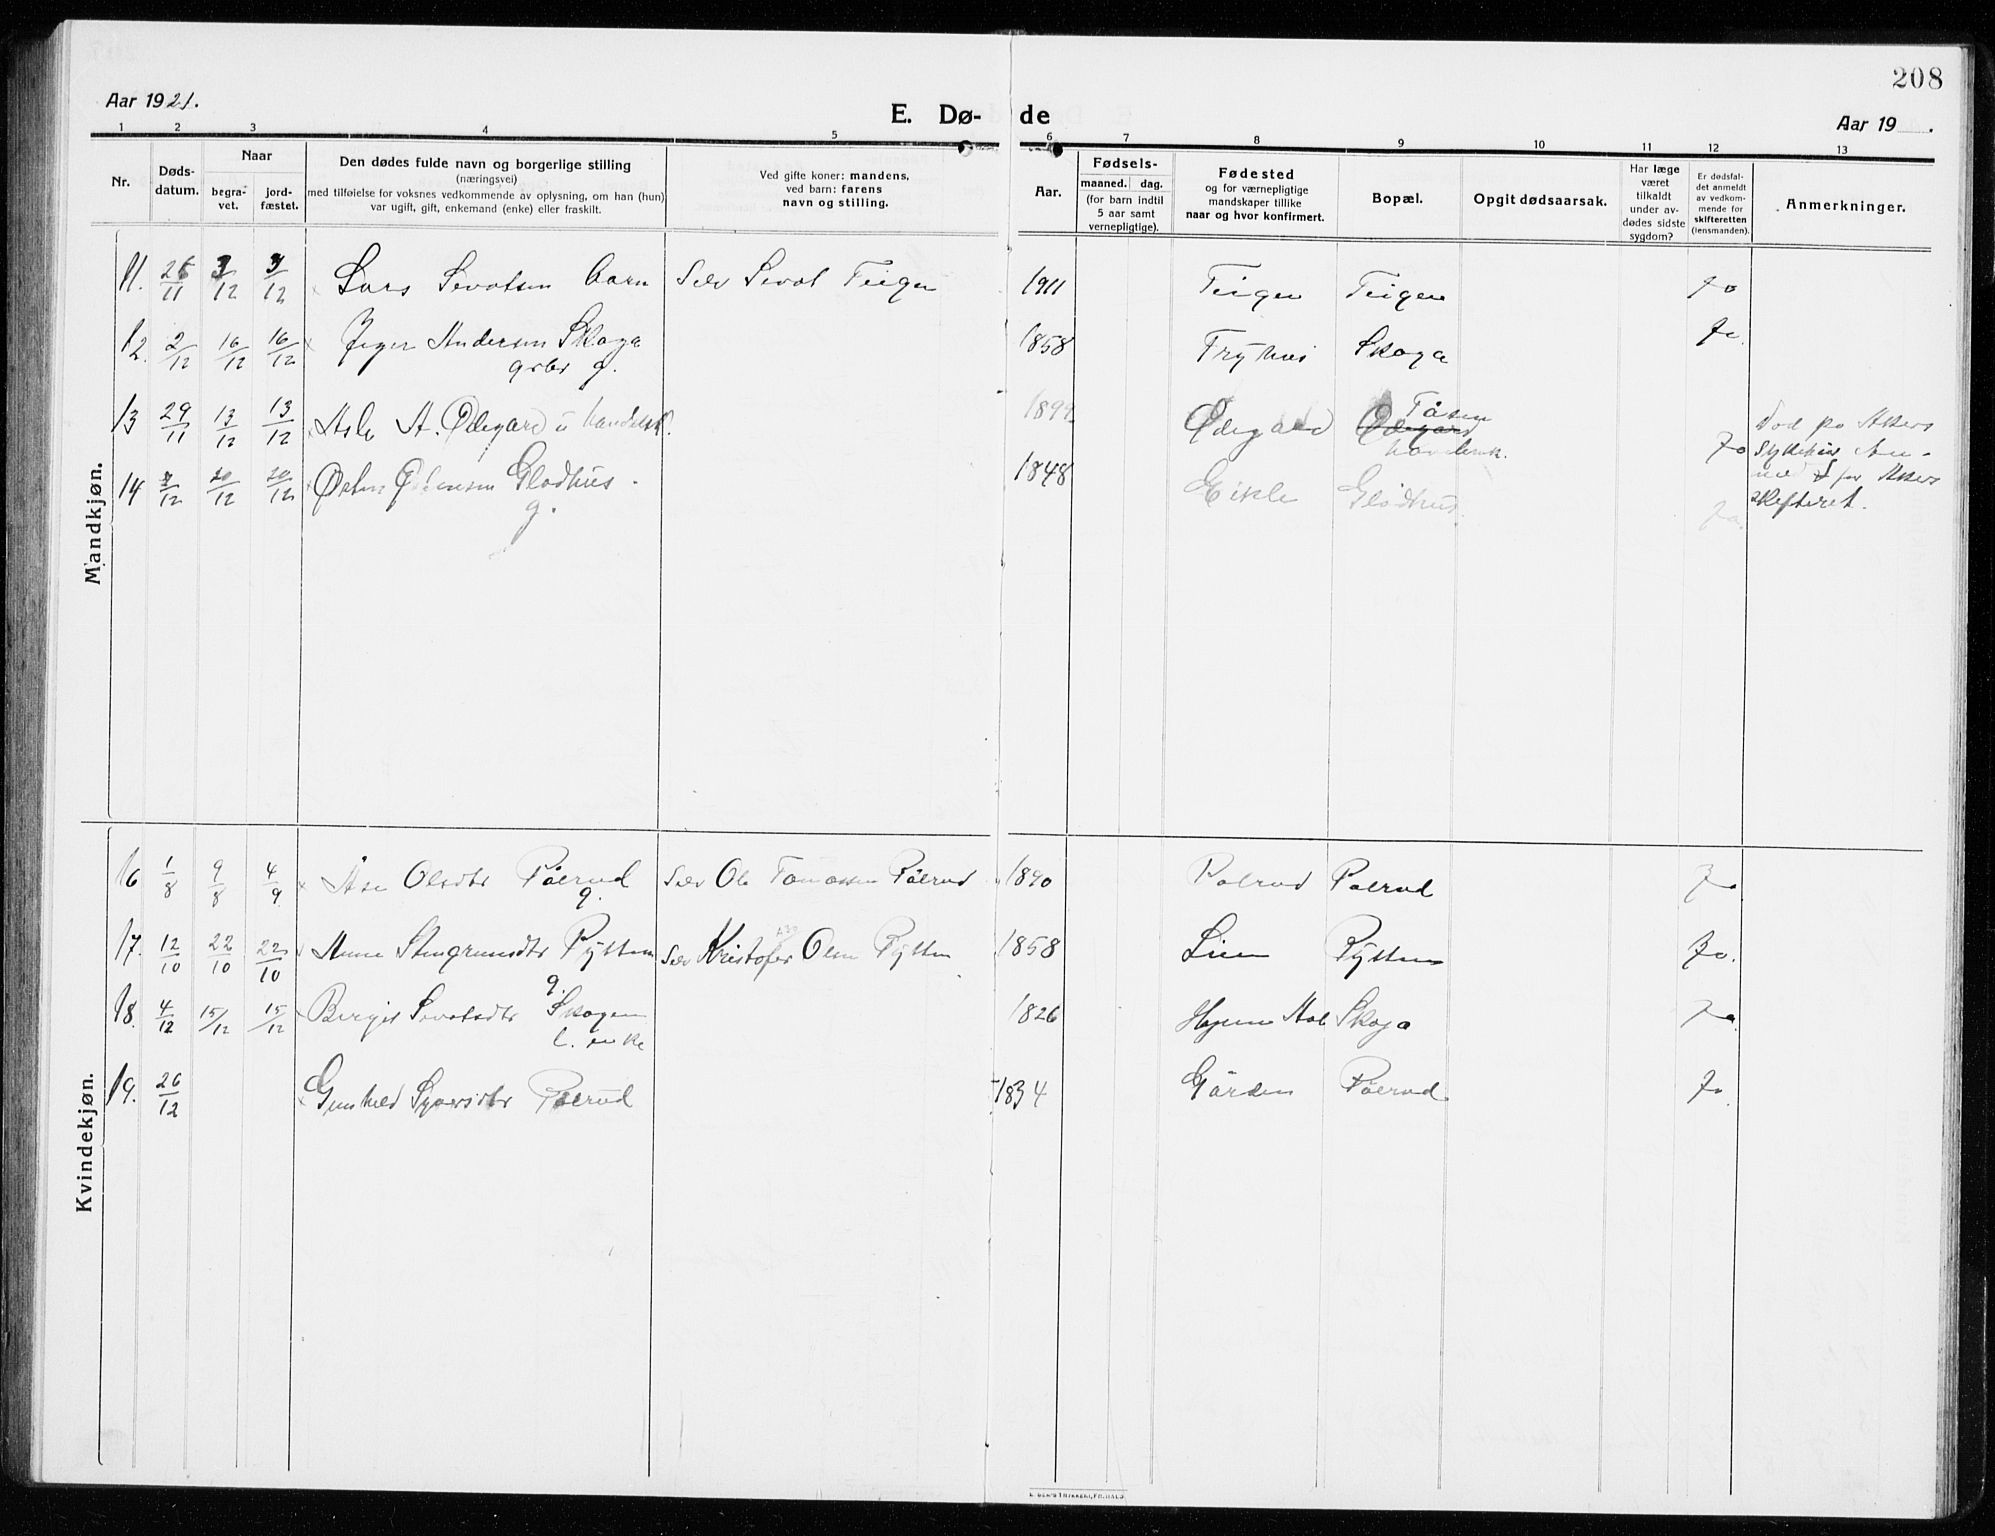 208
Aar 1921.
E. Dø-
de
Aar 19 .
1 2 3 4 5 6 7 8 9 10 11 12 13
Nr.
Døds-
datum.
Naar
begra-
vet.
jord-
fæstet.
Den dødes fulde navn og borgerlige stilling
(næringsvei)
med tilføielse for voksnes vedkommende av oplysning, om han (hun)
var ugift, gift, enkemand (enke) eller fraskilt.
Ved gifte koner: mandens,
ved barn: farens
navn og stilling.
Aar.
Fødsels-
maaned. dag.
(for barn indtil
5 aar samt
vernepligtige).
Fødested
og for værnepligtige
mandskaper tillike
naar og hvor konfirmert.
Bopæl.
Opgit dødsaarsak.
Har læge
været
tilkaldt
under av-
dødes sidste
sygdom?
Er dødsfal-
det anmeldt
av vedkom-
mende for
skifteretten
(lensmanden).
Anmerkninger.
Mandkjøn.
11. 3/12 3/12 Lars Sevatsen barn Selv Sevat Teigen 1911 Teigen Teigen Ja
12. 2/12 16/12 16/12 Andersen Skaga 1858 Skaga Ja.
g.
13 29/11 13/12 13/12 Asle A. Ødegard u 1899 Ødegard Ødegard Tåsen Ja
Død på Akers
Sykehus
for Akers
Skifteret.
14 20/12 20/12 Glodhus. 1848 Eikle Glodhus. Ja.
g.
Kvindekjøn.
16 1/8 9/8 4/9 Åse Olsdtr Pålerud Ole Tomassen Pålerud 1890 Palerud Palerud Ja
g.
17. 12/10 22/10 22/10 Anne Stengrimsdtr Pytten Kristofer Olsen Pytten 1858 Lien Pytten Ja.
g.
18. 4/12 15/12 15/12 Bergit Sevatsdtr Skagen 1826 Aal Skaga Ja.
l. enke
19. 26/12 Gunhild Syversdtr Pålerud 1834 Gården Pålerud Ja.